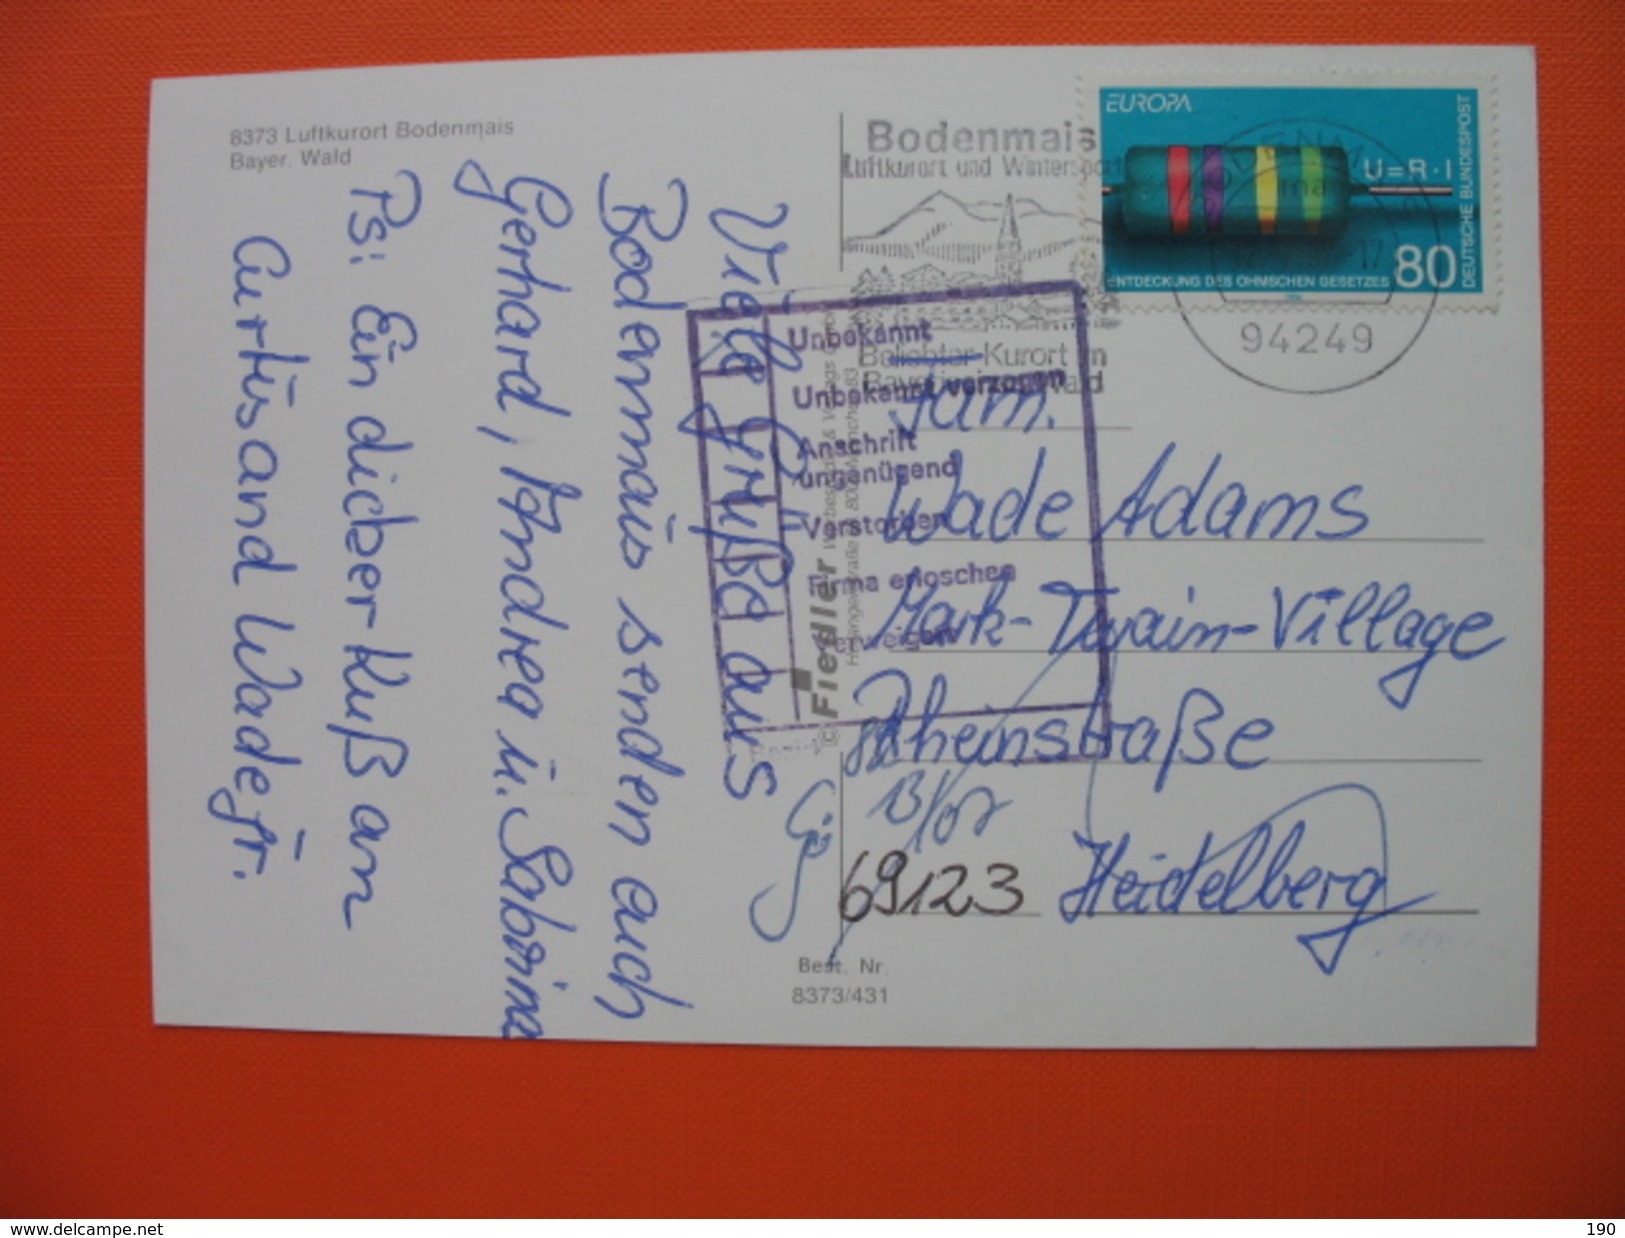 8373 Luftkurort Bodenmais
Bayer. Wald
Viele Grüße aus
Bodenmais senden euch
Gerhard, Andrea u. Sabrina
Ps: Ein dicker Kuß an
Curtis and Wade jr.
Bodenmais
Luftkurort und Wintersport
Beliebter Kurort im
Bayerischen Wald
EUROPA
U=R·I
ENTDECKUNG DES OHMSCHEN GESETZES
80
DEUTSCHE BUNDESPOST
94249
Unbekannt
Unbekannt verzogen
Anschrift
ungenügend
Verstorben
Firma erloschen
verweigert
© Fiedler
Fam.
Wade Adams
Mark-Twain-Village
Rheinstraße
13/07
69123 Heidelberg
Best. Nr.
8373/431
www.delcampe.net
190